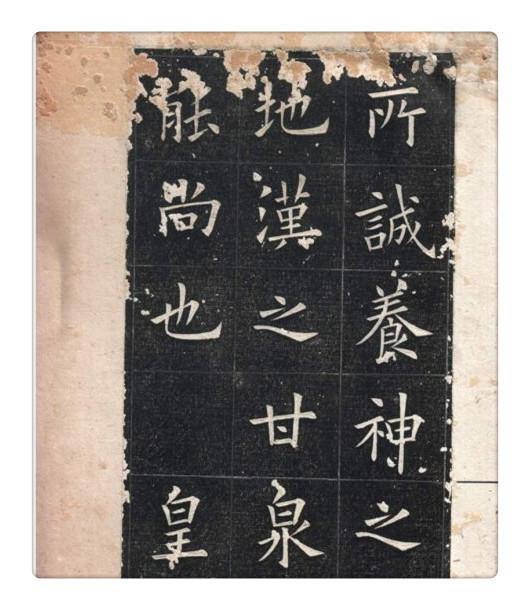 所誠養神之
地漢之甘泉
能尚也 皇